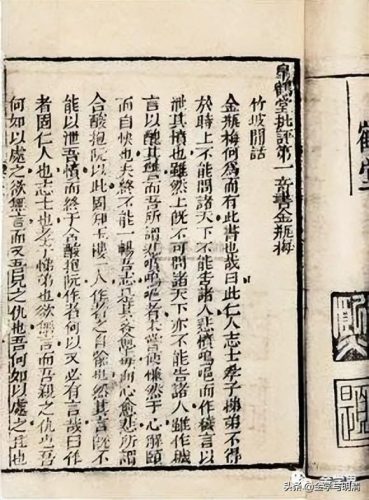 皐鶴堂批評第一奇書金瓶梅
竹坡閒話
金瓶梅何爲而有此書也哉曰此仁人志士孝子悌弟不得
於時上不能問諸天下不能告諸人悲憤嗚唈而作穢言以
泄其憤也雖然上既不可問諸天下亦不能告諸人雖作穢
言以醜其仇而吾所謂悲憤嗚唈者未嘗便慊然于心解頤
而自快也夫終不能一暢吾志是其言愈毒而心愈悲所謂
含酸抱阮以此固知玉樓一人作者之自喻也然其言既不
能以泄吾憤而終于含酸抱阮作者何以又必有言哉曰作
者固仁人也志士也孝子悌弟也欲無言而吾親之仇也吾
何如以處之欲無言而又吾兄之仇也吾何如以處之且也
鶴堂
頭条 @金学与明清